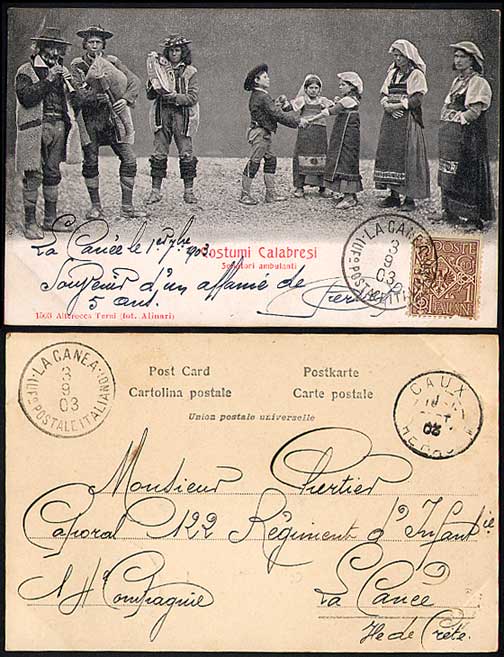 Costumi Calabresi
Suonatori ambulanti
LA CANEA
3
9
03
La Canée le 1er 7bre 903
Souvenir d'un affamé de
5 ans.
POSTE
1503 Alterocca Terni (fot. Alinari)
LA CANEA
UFF° POSTALE ITALIANO
3
9
03
Post Card
Postkarte
Cartolina postale
Carte postale
Union postale universelle
CAUX
03
Monsieur
Caporal 122 Régiment d'Infantie
Compagnie
La Canée
Ile de Crète.